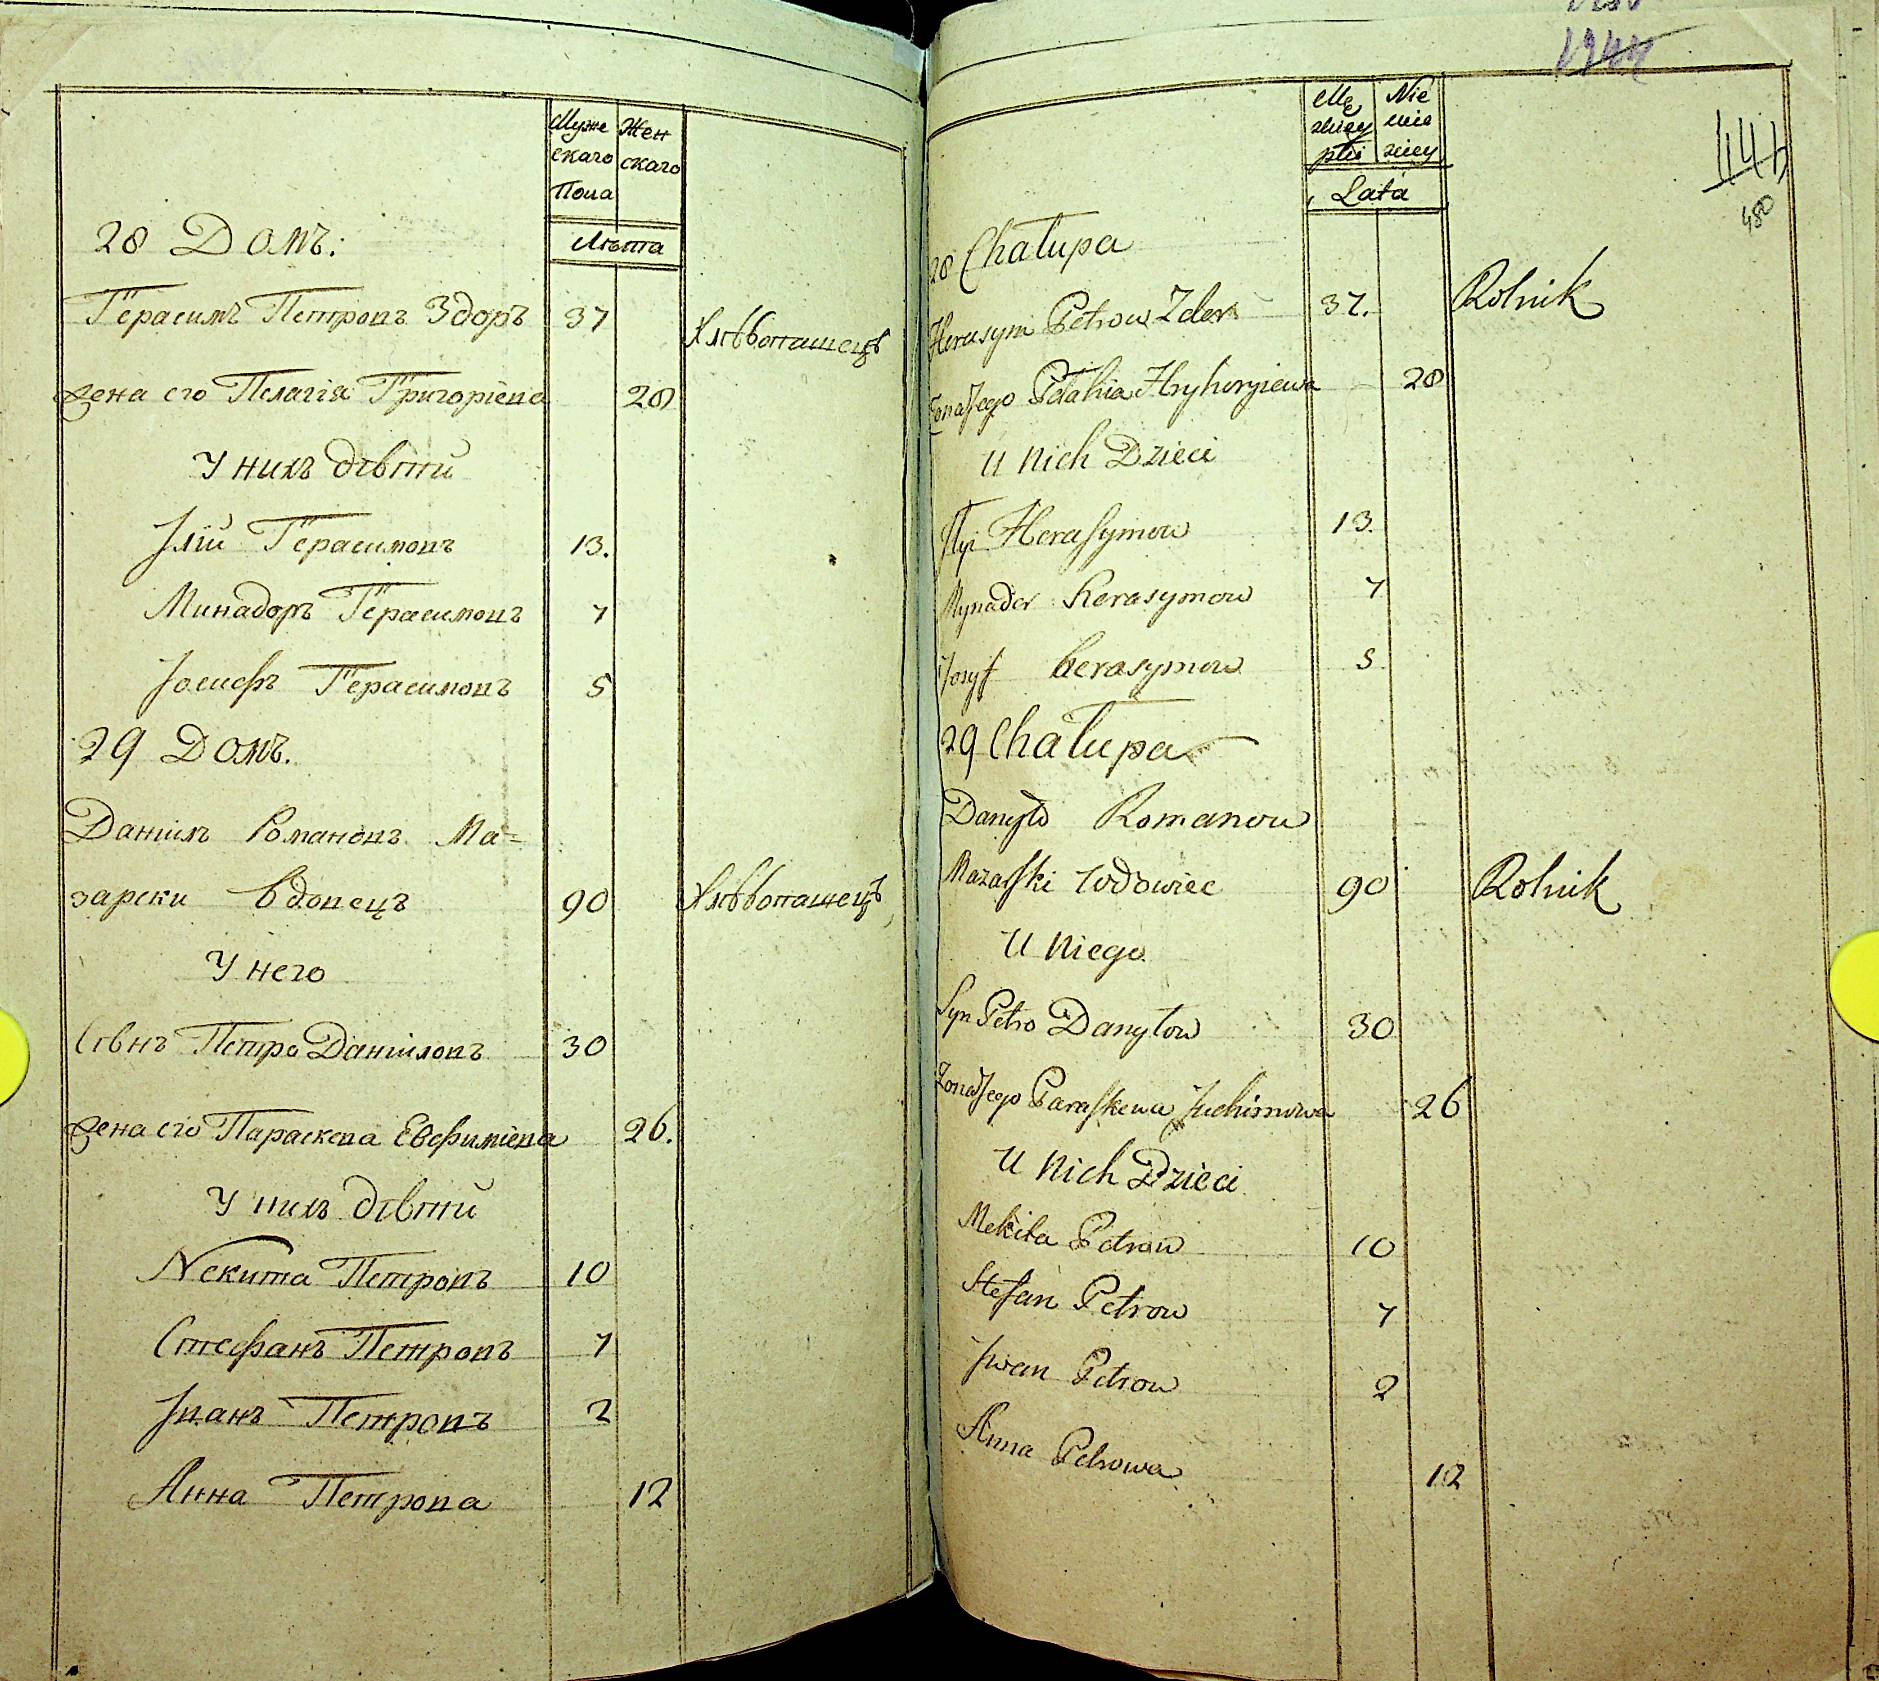 Муже Жен
скаго скаго
Пола
Лѣта
28 Домъ.
Герасимъ Петровъ Здоръ 37 Хлѣбопашецъ
Жена его Пелагія Григоріева 28
У нихъ дѣти
Ілій Герасимовъ 13.
Минадоръ Герасимовъ 7
Іосифъ Герасимовъ 5
29 Домъ.
Даніилъ Романовъ Ма=
зарски Вдовецъ 90 Хлѣбопашецъ
У него
Сынъ Петро Даніиловъ 30
Жена его Параскева Евфиміева 26.
У нихъ дѣти
Некита Петровъ 10
Стефанъ Петровъ 7
Іванъ Петровъ 2
Анна Петрова 12
1944
114
480
Mę Nie
plci
Lata
28 Chałupa
Herasym Petrow Zdor 37. Rolnik
Żona Jego Pelahia Hryhoryiewa 28
U Nich Dzieci
Ilyi Herasymow 13.
Mynador Herasymow 7
Josyf Herasymow 5
29 Chałupa
Danyło Romanow
Mazarski Wdowiec 90 Rolnik
U Niego
Syn Petro Danyłow 30
Żona Jego Paraskewa Juchimowa 26
U Nich Dzieci
Mekita Petrow 10
Stefan Petrow 7
Jwan Petrow 2
Anna Petrowa 12